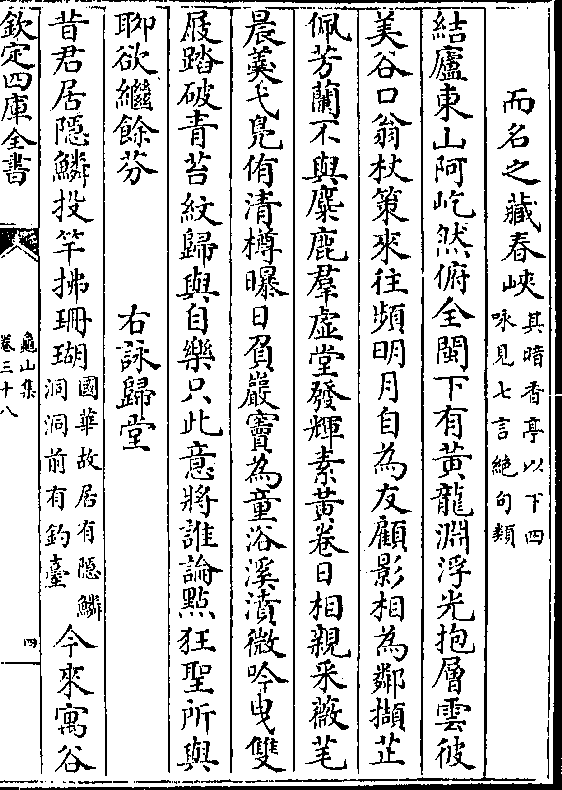 而名之藏春峽其暗香亭以下四詠見七言絶句類
結廬東山阿屹然俯全閩下有黄龍淵浮光抱層雲彼
美谷口翁杖策來往頻明月自為友顧影相為鄰擷芷
佩芳蘭不與麋鹿羣虚堂發輝素黄卷日相親采薇芼
晨羮弋鳬侑清樽曝日負巖竇為童浴溪濆微吟曳雙
屐踏破青苔紋歸與自樂只此意將誰論點狂聖所與
聊欲繼餘芬　右詠歸堂
昔君居隠鱗投竿拂珊瑚國華故居有隠鱗洞洞前有釣臺今來寓谷
欽定四庫全書
龜山集
卷三十八
四